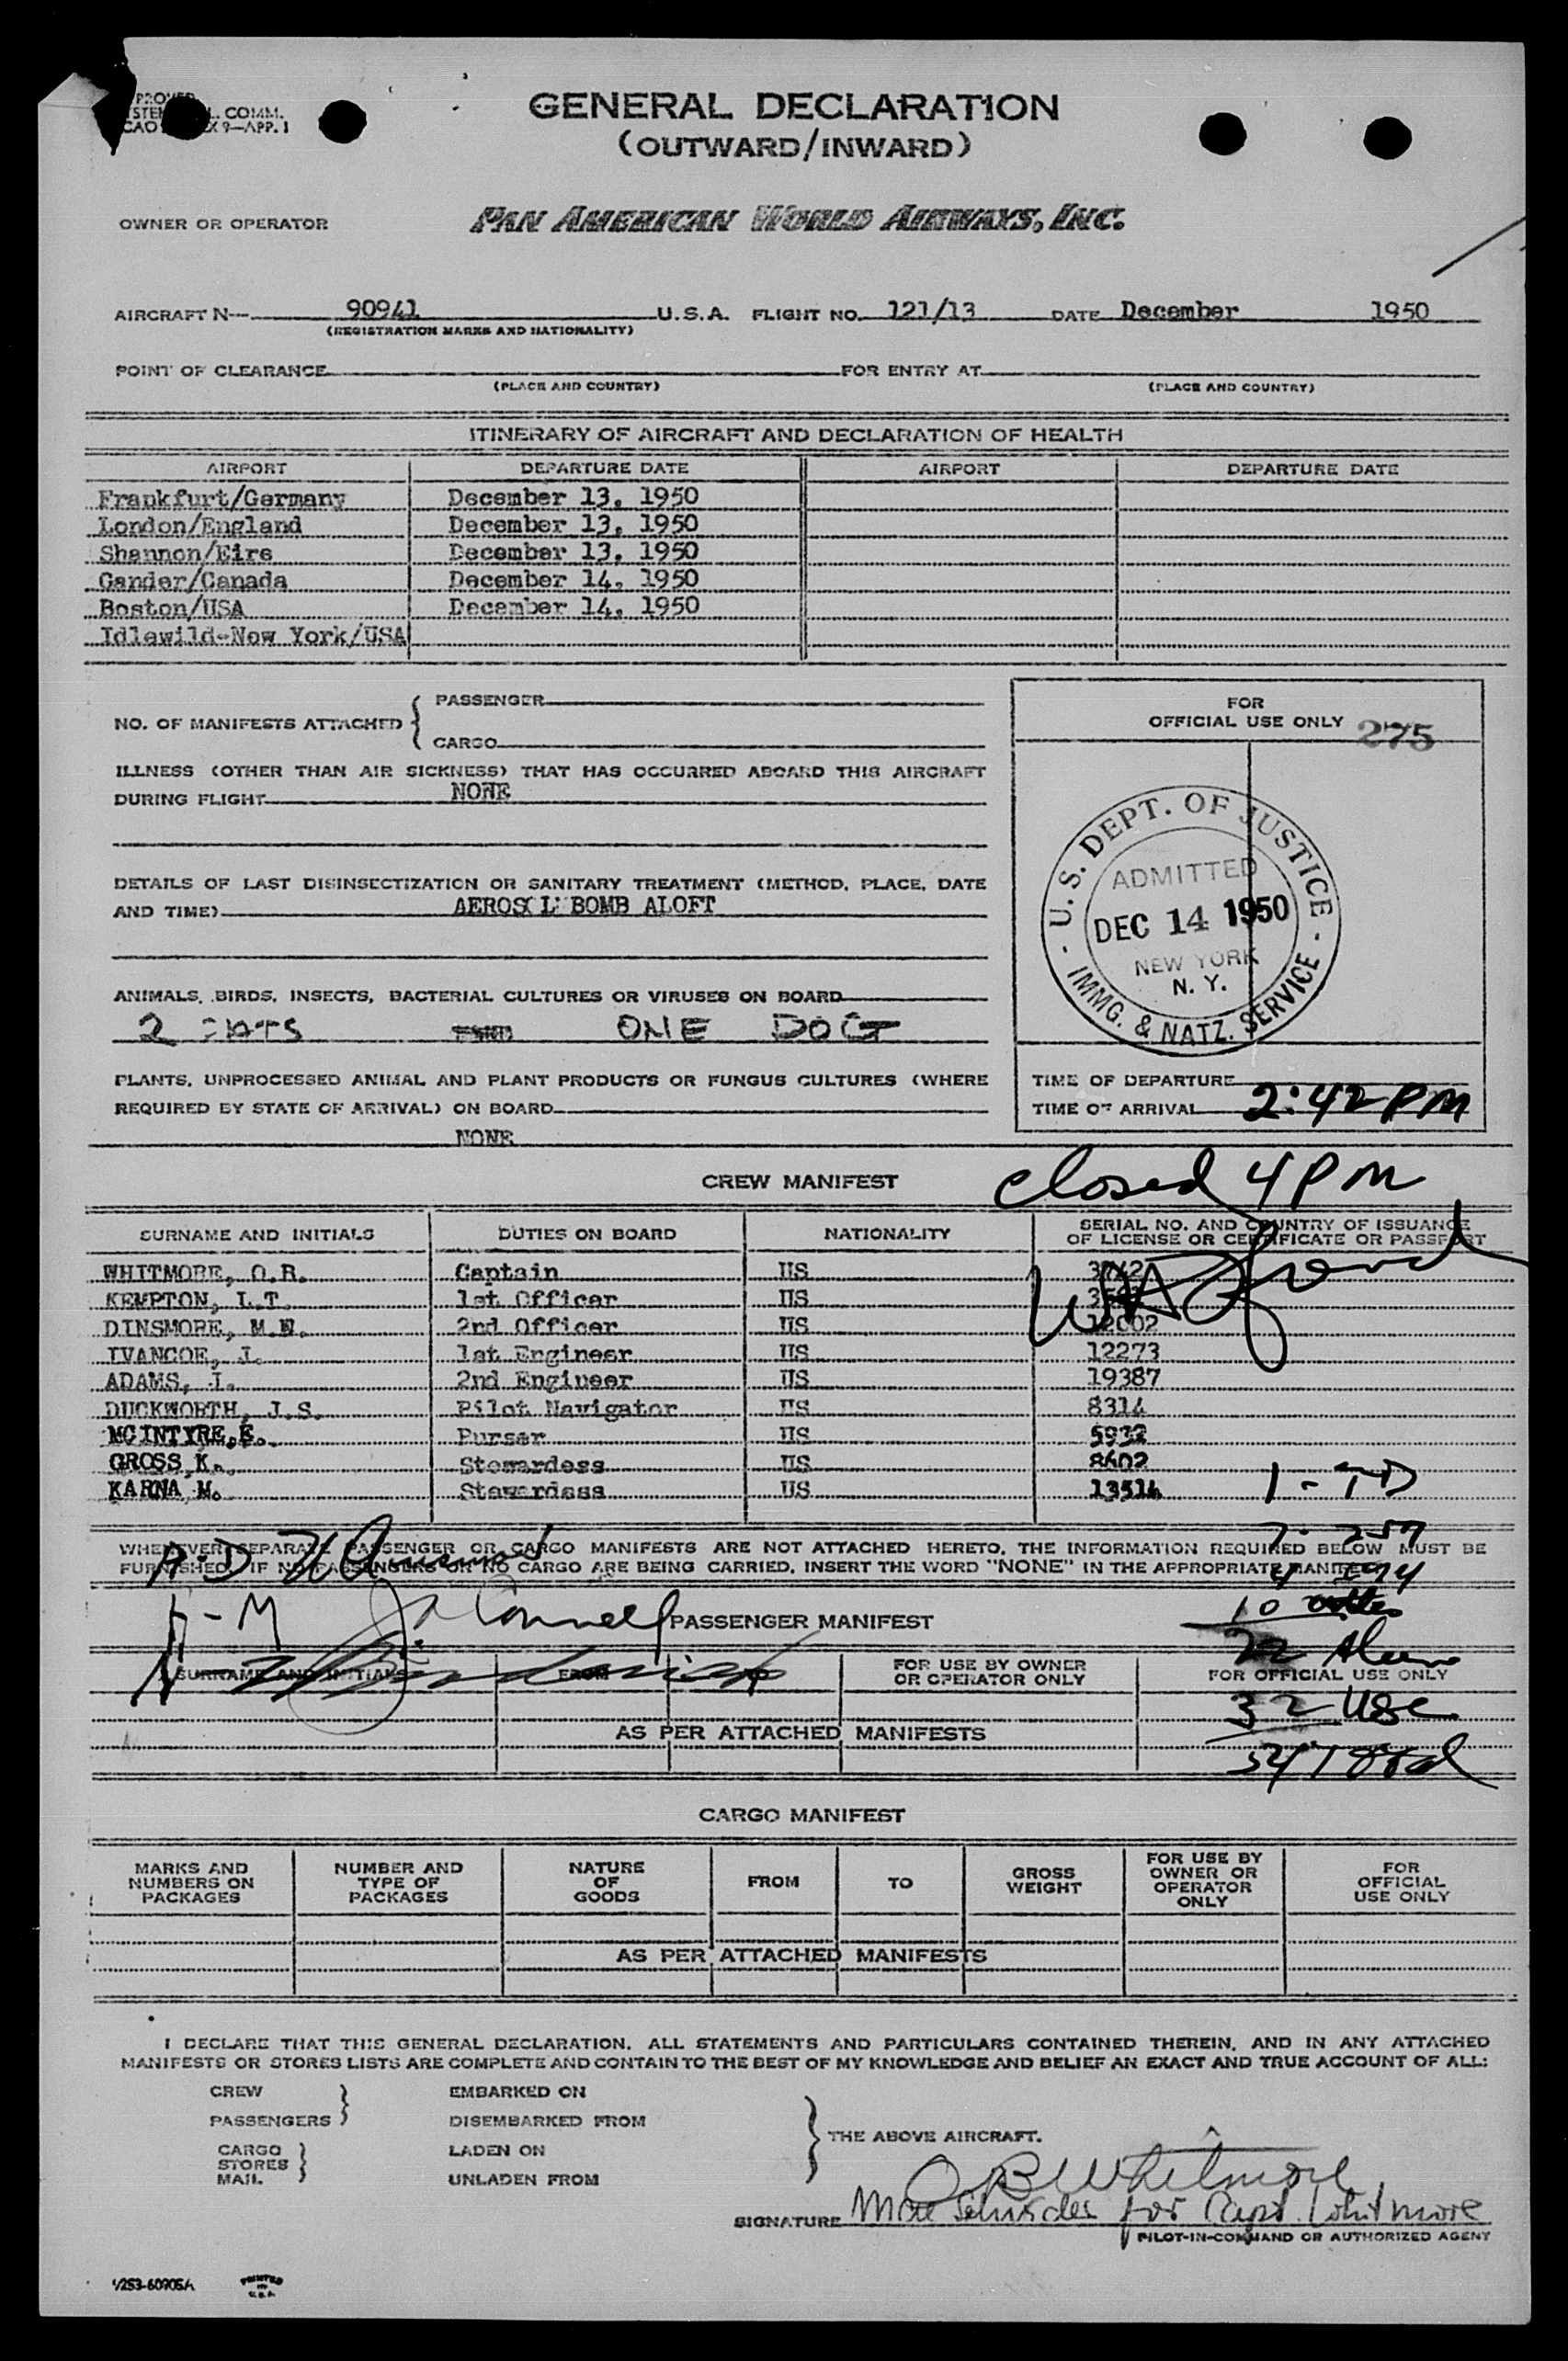 GENERAL DECLARATION
(OUTWARD/INWARD)
OWNER OR OPERATOR PAN AMERICAN WORLD AIRWAYS, INC.
AIRCRAFT N— 90941 U.S.A. FLIGHT NO. 121/13 DATE December 1950
(REGISTRATION MARKS AND NATIONALITY)
POINT OF CLEARANCE FOR ENTRY AT
(PLACE AND COUNTRY) (PLACE AND COUNTRY)
ITINERARY OF AIRCRAFT AND DECLARATION OF HEALTH
AIRPORT DEPARTURE DATE AIRPORT DEPARTURE DATE
Frankfurt/Germany December 13, 1950
London/England December 13, 1950
Shannon/Eire December 13, 1950
Gander/Canada December 14, 1950
Boston/USA December 14, 1950
Idlewild-New York/USA
NO. OF MANIFESTS ATTACHED
PASSENGER
CARGO
ILLNESS (OTHER THAN AIR SICKNESS) THAT HAS OCCURRED ABOARD THIS AIRCRAFT
DURING FLIGHT NONE
DETAILS OF LAST DISINSECTIZATION OR SANITARY TREATMENT (METHOD, PLACE, DATE
AND TIME) AEROSOL BOMB ALOFT
ANIMALS, BIRDS, INSECTS, BACTERIAL CULTURES OR VIRUSES ON BOARD
2 ONE DOG
PLANTS, UNPROCESSED ANIMAL AND PLANT PRODUCTS OR FUNGUS CULTURES (WHERE
REQUIRED BY STATE OF ARRIVAL) ON BOARD
NONE
FOR
OFFICIAL USE ONLY 275
U.S. DEPT. OF JUSTICE
ADMITTED
DEC 14 1950
NEW YORK
N. Y.
IMMG. & NATZ. SERVICE
TIME OF DEPARTURE
TIME OF ARRIVAL 2:42 PM
CREW MANIFEST closed 4 PM
SURNAME AND INITIALS DUTIES ON BOARD NATIONALITY SERIAL NO. AND COUNTRY OF ISSUANCE
OF LICENSE OR CERTIFICATE OR PASSPORT
WHITMORE, O.B. Captain US
KEMPTON, L.T. 1st Officer US
DINSMORE, M.E. 2nd Officer US 12002
IVANCOE, J. 1st Engineer US 12273
ADAMS, I. 2nd Engineer US 19387
DUCKWORTH, J.S. Pilot Navigator US 8314
MC INTYRE, E. Purser US 5932
GROSS, K. Stewardess US 8602
KARNA M. Stewardess US 13514
1 - TD
WHENEVER SEPARATE PASSENGER OR CARGO MANIFESTS ARE NOT ATTACHED HERETO, THE INFORMATION REQUIRED BELOW MUST BE
FURNISHED. IF NO PASSENGERS OR NO CARGO ARE BEING CARRIED, INSERT THE WORD "NONE" IN THE APPROPRIATE MANIFEST
A-D
H-M
PASSENGER MANIFEST
10
SURNAME AND INITIALS FROM TO FOR USE BY OWNER
OR OPERATOR ONLY FOR OFFICIAL USE ONLY
22 Alien
32 USC
54 Total
AS PER ATTACHED MANIFESTS
CARGO MANIFEST
MARKS AND
NUMBERS ON
PACKAGES
NUMBER AND
TYPE OF
PACKAGES
NATURE
OF
GOODS
FROM
TO
GROSS
WEIGHT
FOR USE BY
OWNER OR
OPERATOR
ONLY
FOR
OFFICIAL
USE ONLY
AS PER ATTACHED MANIFESTS
I DECLARE THAT THIS GENERAL DECLARATION, ALL STATEMENTS AND PARTICULARS CONTAINED THEREIN, AND IN ANY ATTACHED
MANIFESTS OR STORES LISTS ARE COMPLETE AND CONTAIN TO THE BEST OF MY KNOWLEDGE AND BELIEF AN EXACT AND TRUE ACCOUNT OF ALL:
CREW EMBARKED ON
PASSENGERS DISEMBARKED FROM
THE ABOVE AIRCRAFT.
CARGO LADEN ON
STORES
MAIL UNLADEN FROM
O B Whitmore
SIGNATURE for Capt. Whitmore
PILOT-IN-COMMAND OR AUTHORIZED AGENT
PRINTED
IN
U.S.A.